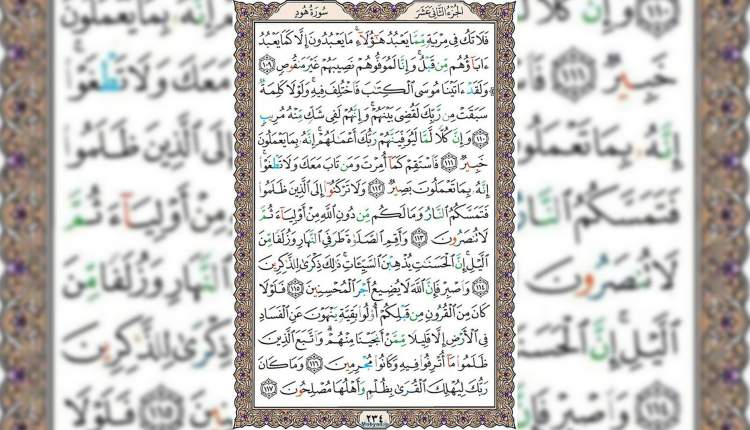 سُورَةُ هُودٍ
الجُزْءُ الثَّانِي عَشَرَ
فَلَا تَكُ فِي مِرْيَةٍ مِّمَّا يَعْبُدُ هَٰٓؤُلَآءِۚ مَا يَعْبُدُونَ إِلَّا كَمَا يَعْبُدُ
ءَابَآؤُهُم مِّن قَبْلُۚ وَإِنَّا لَمُوَفُّوهُمْ نَصِيبَهُمْ غَيْرَ مَنقُوصٍ ١٠٩
وَلَقَدْ ءَاتَيْنَا مُوسَى ٱلْكِتَٰبَ فَٱخْتُلِفَ فِيهِۚ وَلَوْلَا كَلِمَةٌ
سَبَقَتْ مِن رَّبِّكَ لَقُضِيَ بَيْنَهُمْۚ وَإِنَّهُمْ لَفِي شَكٍّ مِّنْهُ مُرِيبٍ
١١٠ وَإِنَّ كُلًّا لَّمَّا لَيُوَفِّيَنَّهُمْ رَبُّكَ أَعْمَٰلَهُمْۚ إِنَّهُۥ بِمَا يَعْمَلُونَ
خَبِيرٌ ١١١ فَٱسْتَقِمْ كَمَآ أُمِرْتَ وَمَن تَابَ مَعَكَ وَلَا تَطْغَوْا۟ۚ
إِنَّهُۥ بِمَا تَعْمَلُونَ بَصِيرٌ ١١٢ وَلَا تَرْكَنُوٓا۟ إِلَى ٱلَّذِينَ ظَلَمُوا۟
فَتَمَسَّكُمُ ٱلنَّارُ وَمَا لَكُم مِّن دُونِ ٱللَّهِ مِنْ أَوْلِيَآءَ ثُمَّ
لَا تُنصَرُونَ ١١٣ وَأَقِمِ ٱلصَّلَوٰةَ طَرَفَيِ ٱلنَّهَارِ وَزُلَفًا مِّنَ
ٱلَّيْلِۚ إِنَّ ٱلْحَسَنَٰتِ يُذْهِبْنَ ٱلسَّيِّـَٔاتِۚ ذَٰلِكَ ذِكْرَىٰ لِلذَّٰكِرِينَ
١١٤ وَٱصْبِرْ فَإِنَّ ٱللَّهَ لَا يُضِيعُ أَجْرَ ٱلْمُحْسِنِينَ ١١٥ فَلَوْلَا
كَانَ مِنَ ٱلْقُرُونِ مِن قَبْلِكُمْ أُو۟لُوا۟ بَقِيَّةٍ يَنْهَوْنَ عَنِ ٱلْفَسَادِ
فِي ٱلْأَرْضِ إِلَّا قَلِيلًا مِّمَّنْ أَنجَيْنَا مِنْهُمْۗ وَٱتَّبَعَ ٱلَّذِينَ
ظَلَمُوا۟ مَآ أُتْرِفُوا۟ فِيهِ وَكَانُوا۟ مُجْرِمِينَ ١١٦ وَمَا كَانَ
رَبُّكَ لِيُهْلِكَ ٱلْقُرَىٰ بِظُلْمٍ وَأَهْلُهَا مُصْلِحُونَ ١١٧
٢٣٤